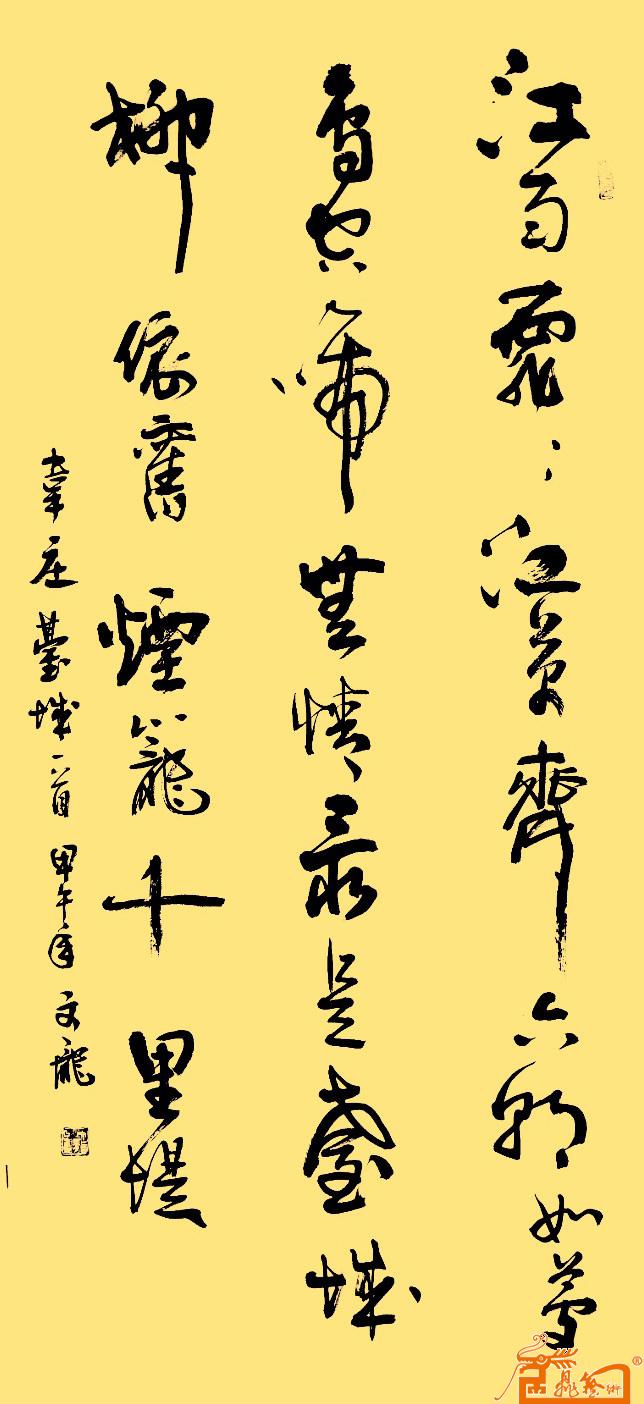 江雨霏〻江草齊六朝如夢
鳥空啼無情最是臺城
柳依舊煙籠十里堤
韋庄臺城一首甲午年文龍
藝術